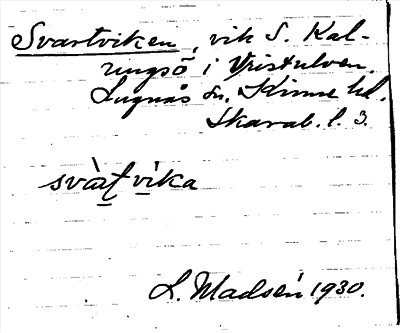 Svartviken, vik S. Kal-
ungsö i
Lugnås sn. Kinne hd.
Skarab. l. 3.
svàrt vìka
L. Madsén 1930.